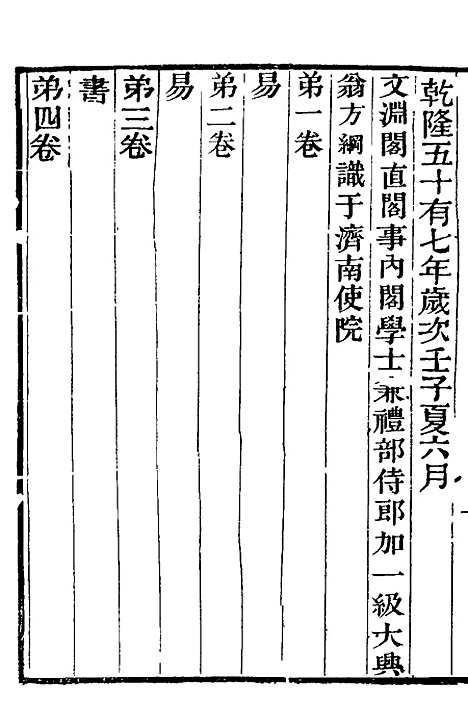 乾隆五十有七年歲次壬子夏六月
文淵閣直閣事內閣學士兼禮部侍郎加一級大興
翁方綱識于濟南使院
弟一卷
易
弟二卷
易
弟三卷
書
弟四卷